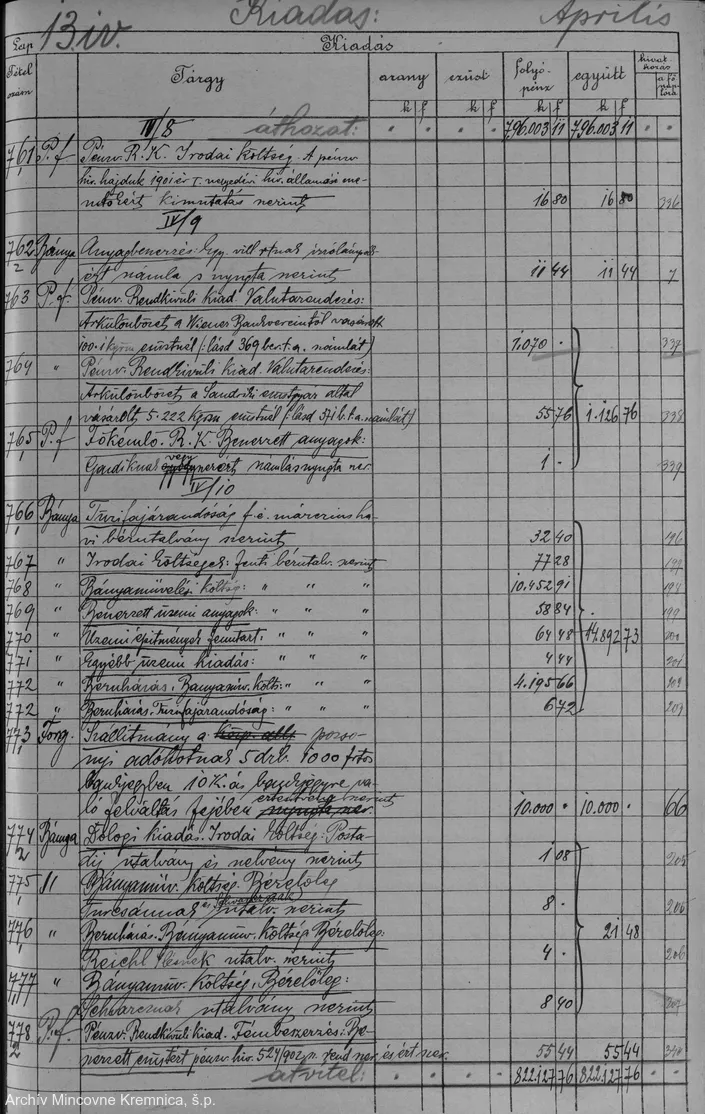 Kiadás: Április
Lap 13 iv. Kiadás
Tétel szám Tárgy arany ezüst folyó-pénz együtt hivat-kozás a fő-naplóra
k f k f k f k f
IV/8 áthozat: 796.003 11 796.003 11
761 P.f Pénzv. R. K. Irodai költség. A pénzv.
hiv. hajduk 1901 év I. negyedévi hiv.
kimutatás szerint 16 80 16 80 336
IV/9
762 Bánya Anyagbeszerzés
számla s nyugta szerint 11 44 11 44 7
763 P.f. Pénzv. Rendkivüli Kiad. Valutarendezés:
Árkülönbözet a Wiener Bankvereintól vásárolt
100.1 kgrm ezüstnél (: lásd 369 bev.t.a. számlát) 1.070 · 337
764 " Pénzv. Rendkivüli Kiad. Valutarendezés:
Árkülönbözet a Sandriki ezüstgyár által
vásárolt 5.222 kgrm ezüstnél (: lásd 371 b.t.a. számlát) 55 76 1.126 76 338
765 P.f Főkemlő. R. K. Beszerzett anyagok:
számla s nyugta sz. 1 · 339
IV/10
766 Bánya Tüzifajárandóság f. é. márczius ha-
vi bérutalvány szerint 32 40 196
767 " Irodai költségek: fenti bérutalv. szerint 77 28
768 " Bányamüvelési költség: " " " 10.452 91 194
769 " Beszerzett üzemi anyagok: " " " 58 84 199
770 " Üzemi építmények fenntart: " " " 64 48 14.892 73
771 " Egyébb üzemi kiadás: " " " 4 44 201
772 " Beruházás. Bányamüv. költs: " " " 4.195 66
772 " Beruházás. Tüzifajárandóság: " " " 6 72 203
773 Forg. Szállitmány a pozso-
nyi adóhivatalnak 5 drb. 1000 frtos
bankjegyben 10 K.ás bankjegyre va-
ló felváltás fejében szerint 10.000 · 10.000 · 66
774 Bánya Dologi kiadás. Irodai költség: Posta-
díj utalvány és szelvény szerint 1 08 205
775 " Bányamüv. Költség. Bérelőleg
utalv. szerint 8 · 205
776 " Beruházás. Bányamüv. költség Bérelőleg: 21 48
Reichl utalv. szerint 4 · 206
777 " Bányamüv. költség. Bérelőleg:
Schvarcznak utalvány szerint 8 40 207
778 P.f. Pénzv. Rendkivüli Kiad. Fémbeszerzés: Be-
szerzett ezüstért pénzv. hiv. 524/902 sz. rend. sz. 55 44 55 44 340
átvitel: 822.127 76 822.127 76
Archív Mincovne Kremnica, š.p.